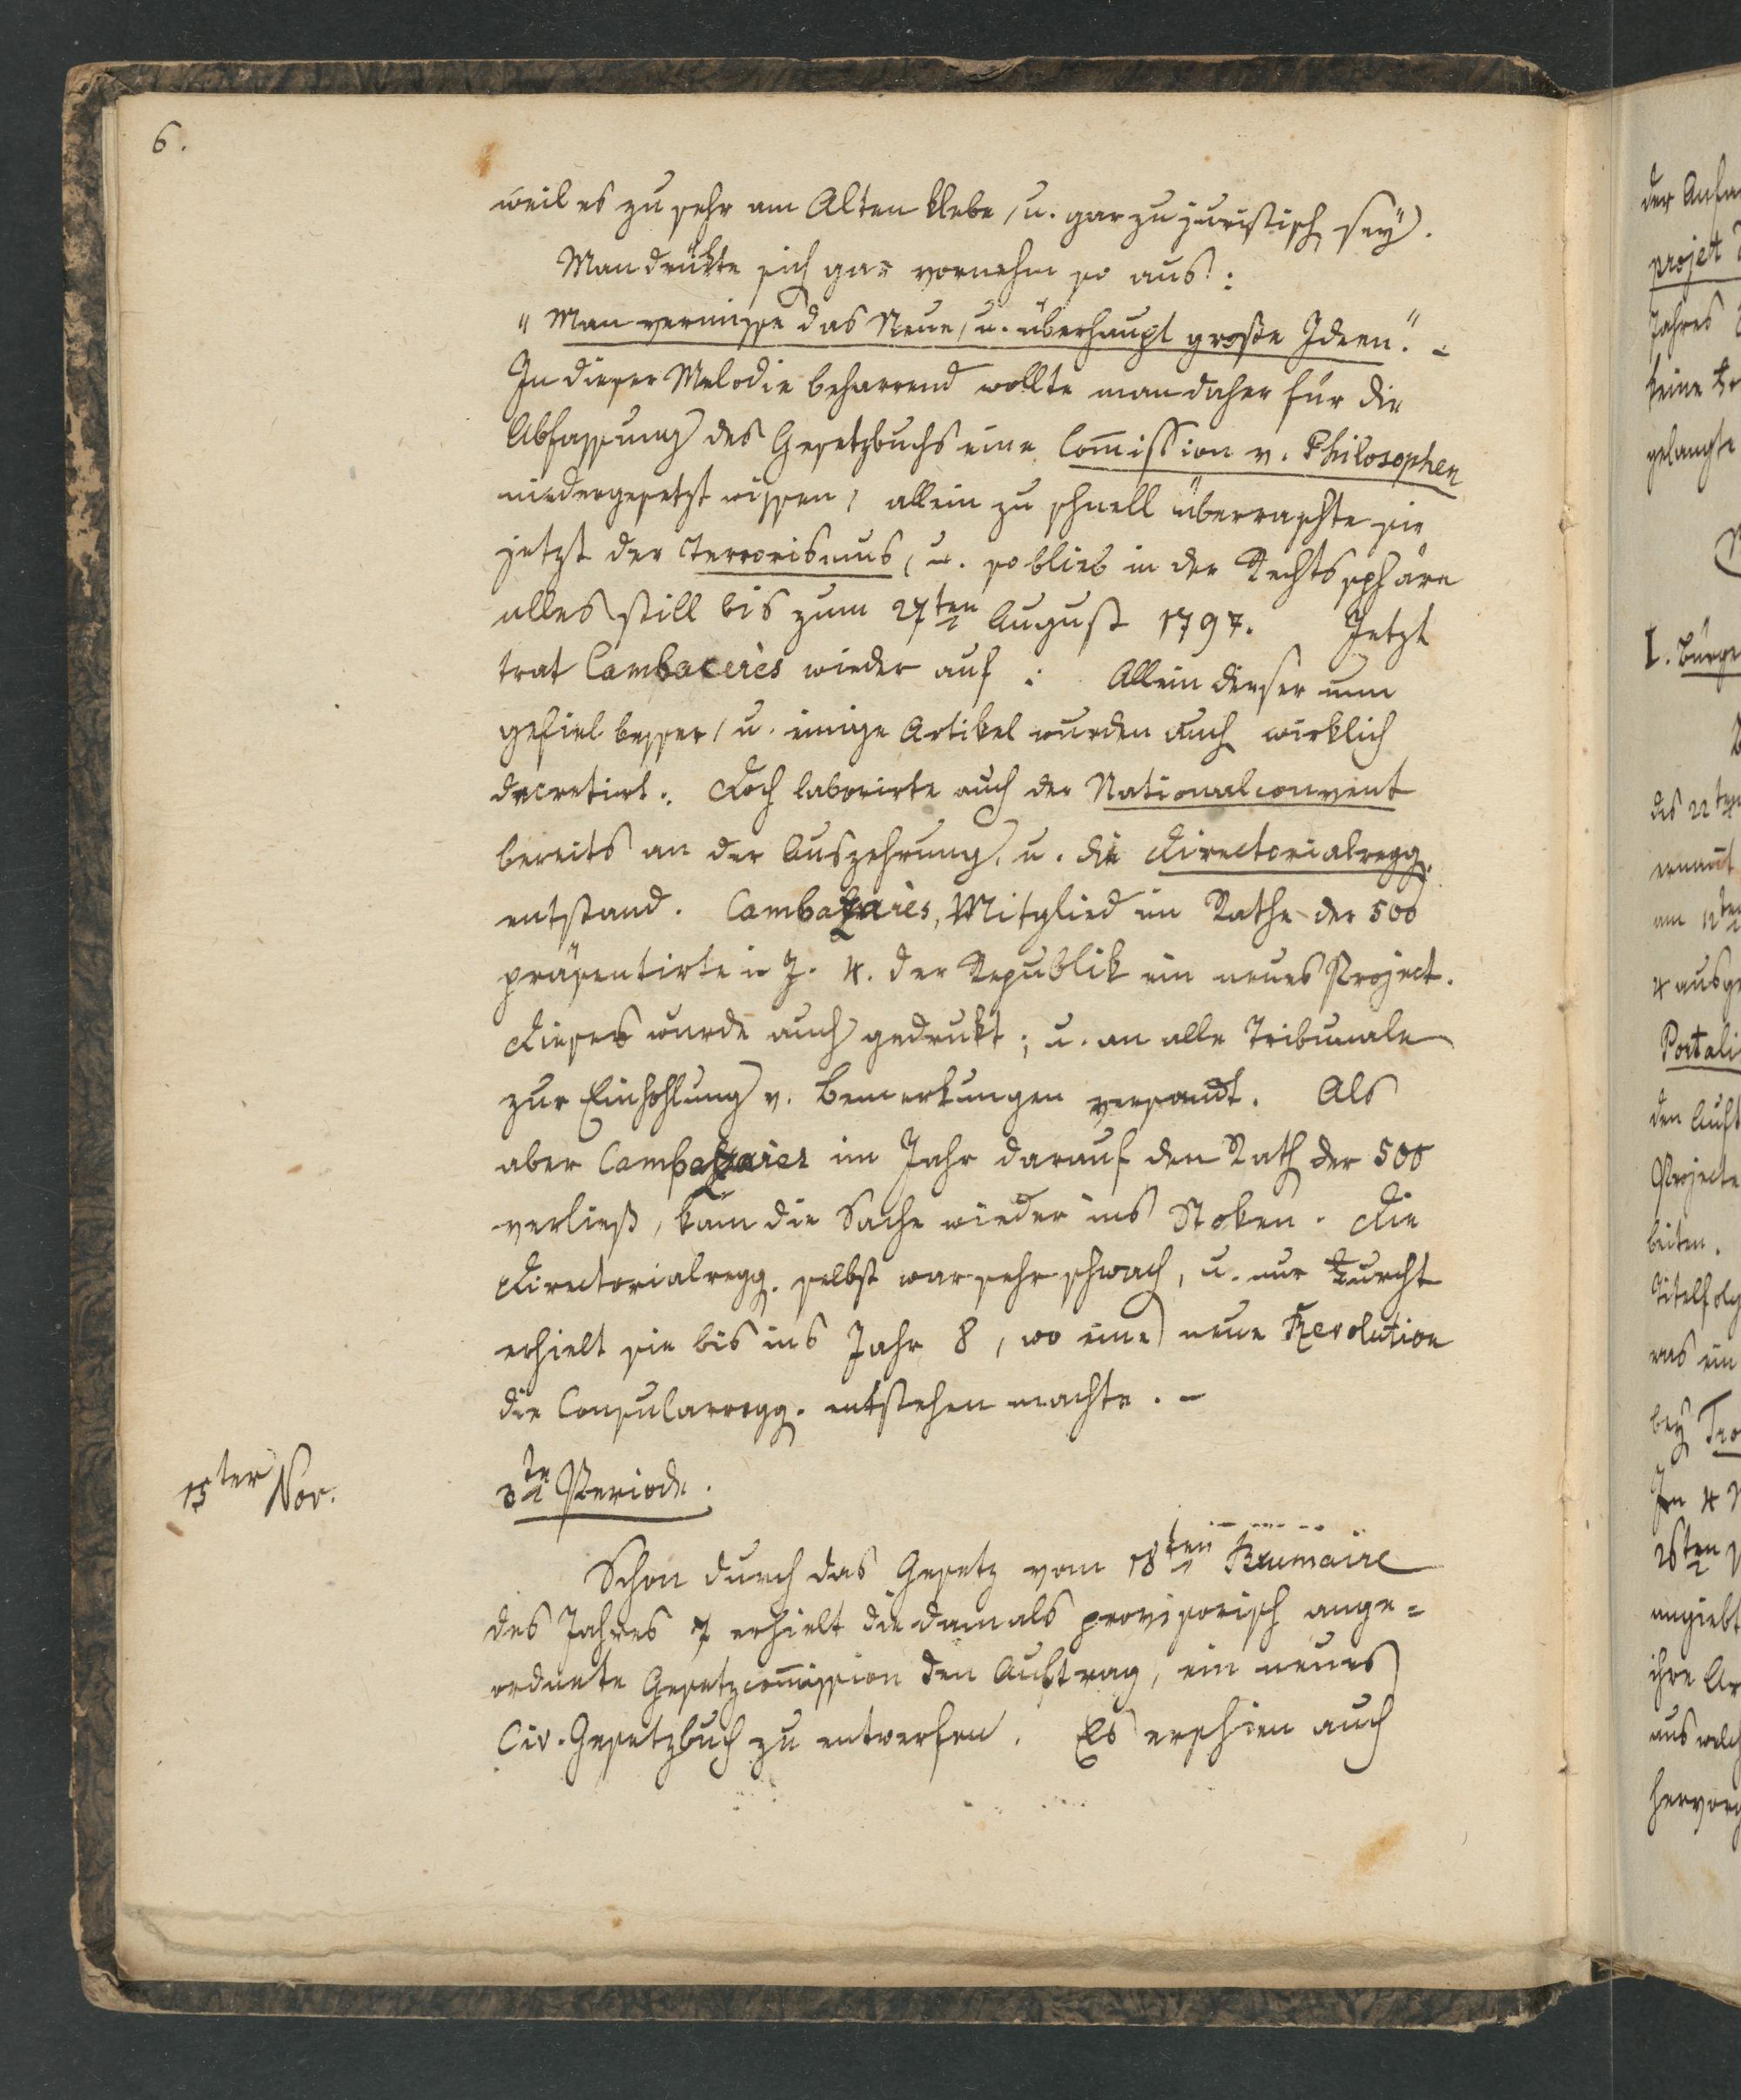 6.
weil es zu sehr am Alten klebe, u. gar zu juristisch sey.
Man drükte sich gar vornehm so aus:
"Man vermisse das Neue, u. überhaupt große Ideen." -
In dieser Melodie beharrend wollte man daher für die
Abfassung des Gesetzbuchs eine Com̅ission v. Philosophen
niedergesetzt wissen, allein zu schnell überraschte sie
jetzt der Terrorismus, u. so blieb in der Rechtssphäre
alles still bis zum 27ten August 1797. Jetzt
trat Cambacerès wieder auf: Allein dieser nun
gefiel besser, u. einige Artikel wurden auch wirklich
decretirt. Doch laborirte auch der Nationalconvent
bereits an der Auszehrung, u. die Directorialregg.
entstand. Mitglied im Rathe der 500
präsentirte i. J. 4. der Republik ein neues Project.
Dieses wurde auch gedrukt; u. an alle Tribunale
zur Einhohlung v. Bemerkungen versandt. Als
aber im Jahr darauf den Rath der 500
verließ, kam die Sache wieder ins Stoken. Die
Directorialregg. selbst war sehr schwach, u. nur Furcht
erhielt sie bis ins Jahr 8, wo eine neue Revolution
die Consularregg. entstehen machte. -
15ter Nov.
3te Periode.
Schon durch das Gesetz vom 18ten Brumaire
des Jahres 7 erhielt die damals provisorisch ange=
ordnete Gesetzcom̅ission den Auftrag, ein neues
Civ. Gesetzbuch zu entwerfen. Es erschien auch
projet
Jahres
keine
gelangte
I. Bürge
des 22ten
ernan̅t
am 12ten
4 ausge
Portali
den Auft
Projecte
beiten.
Titelfolg
ein
bey Tro
In 4
26ten
angiebt
ihre
aus welch
hervorg